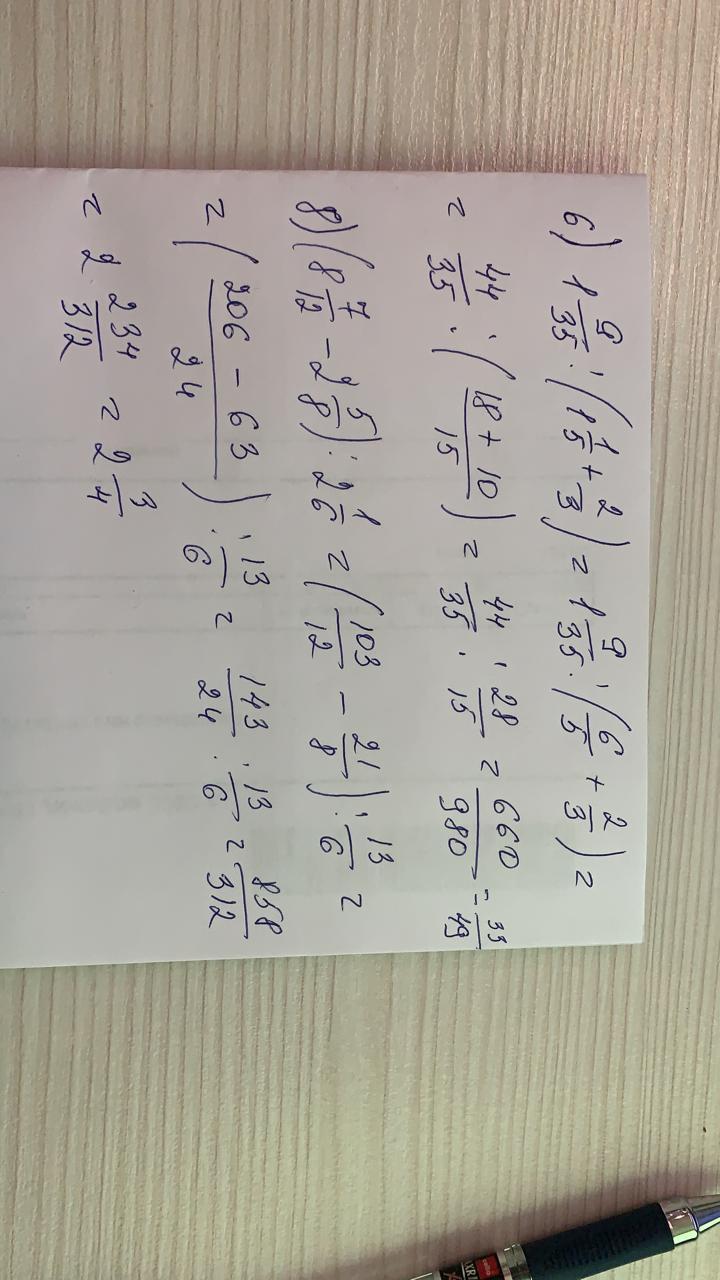 6) 1 9/35 : (1 1/5 + 2/3) = 1 9/35 : (6/5 + 2/3) =
= 44/35 : (18 + 10 / 15) = 44/35 : 28/15 = 660/980 = 33/49
8) (8 7/12 - 2 5/8) : 2 1/6 = (103/12 - 21/8) : 13/6 =
= (206 - 63 / 24) : 13/6 = 143/24 : 13/6 = 858/312
= 2 234/312 = 2 3/4